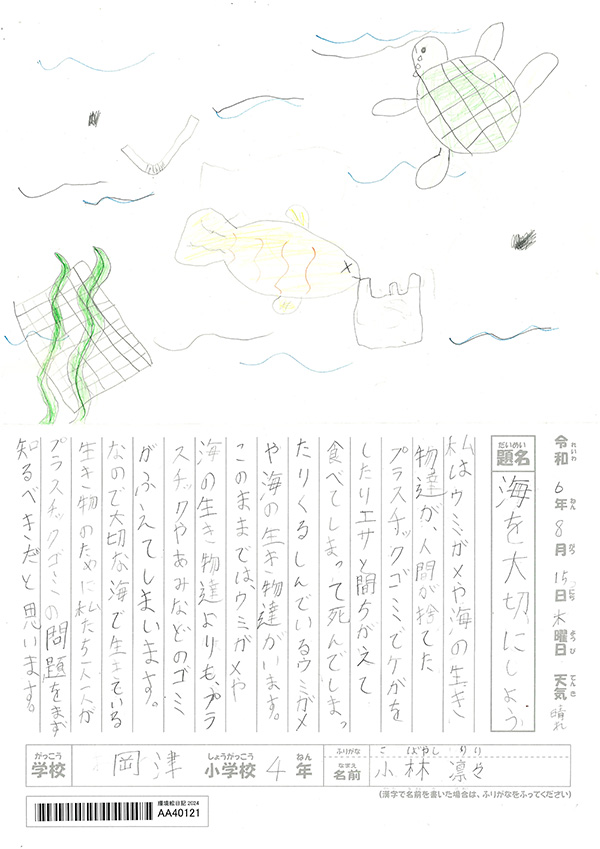 令和6年8月15日木曜日 天気 晴れ
れいわ ねん がつ にち ようび てんき
だいめい
題名 海を大切にしよう
私はウミガメや海の生き
物達が、人間が捨てた
プラスチックゴミでケガを
したりエサと間ちがえて
食べてしまって死んでしまっ
たりくるしんでいるウミガメ
や海の生き物達がいます。
このままでは、ウミガメや
海の生き物達よりも、プラ
スチックやあみなどのゴミ
がふえてしまいます。
なので大切な海で生きている
生き物のために私たち一人一人が
プラスチックゴミの問題をまず
知るべきだと思います。
がっこう しょうがっこう ねん
学校 岡津 小学校 4年
ふりがな こばやし りり
なまえ
名前 小林 凛々
(漢字で名前を書いた場合は、ふりがなをふってください)
環境絵日記2024
AA40121